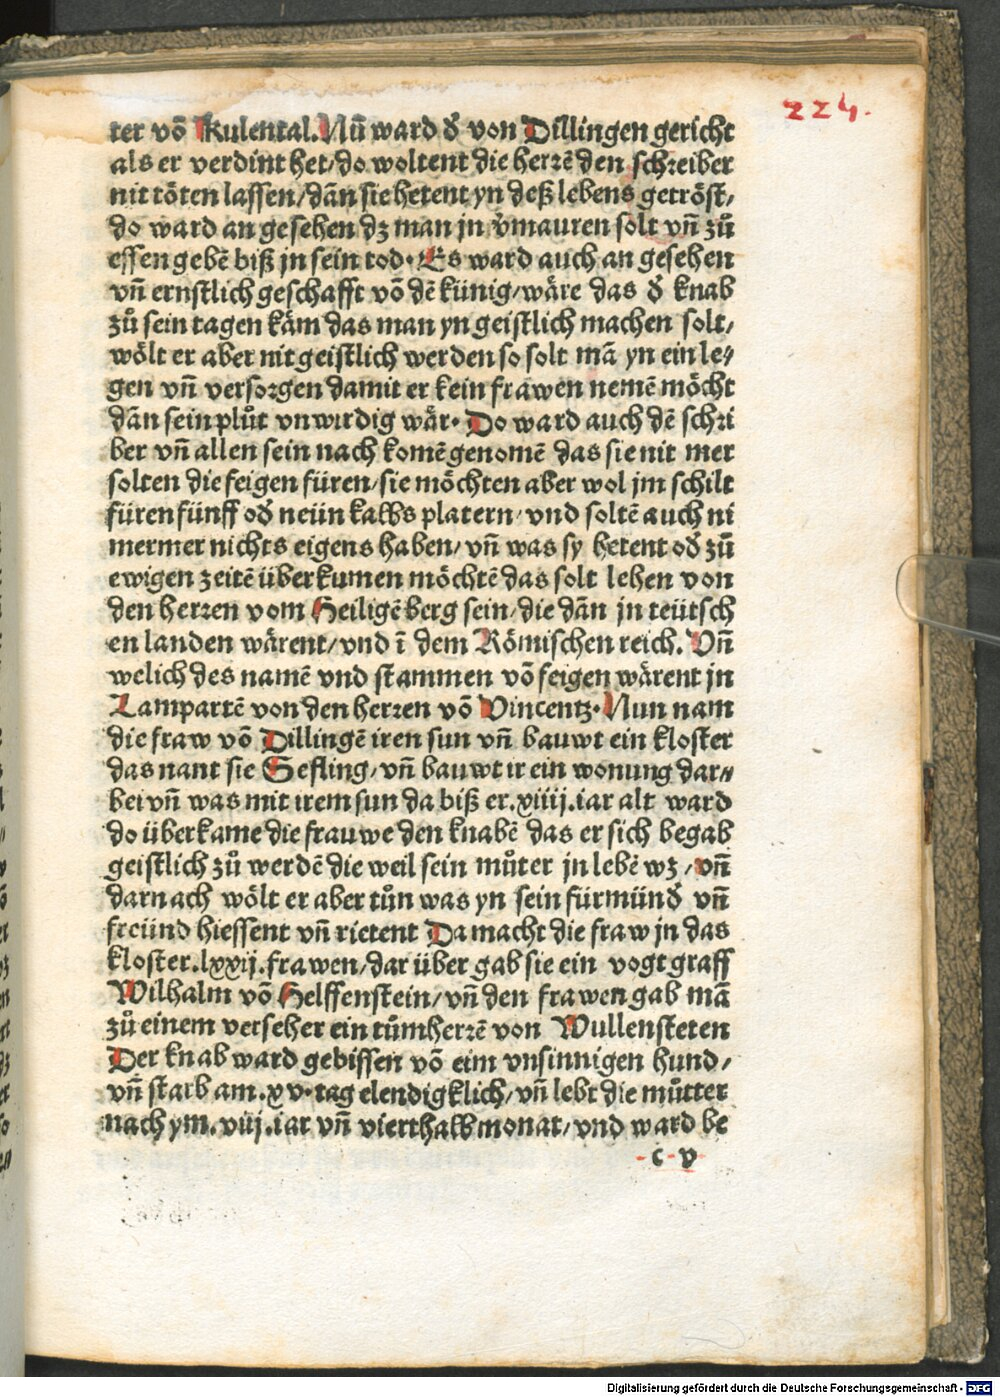 224.
ter võ Kulental. Nũ ward d̕ von Dillingen gericht
als er verdint het/do woltent die herrē den schreiber
nit töten lassen/dān sie hetent yn deß lebens getröst/
do ward an gesehen dz man jn v̕mauren solt vn̄ zů
essen gebē biß jn sein tod. Es ward auch an gesehen
vn̄ ernstlich geschafft võ dē künig/wäre das d̕ knab
zů sein tagen käm das man yn geistlich machen solt/
wölt er aber nit geistlich werden so solt mā yn ein le⸗
gen vn̄ versorgen damit er kein frawen nemē möcht
dān sein plůt vnwirdig wär. Do ward auch dē schri
ber vn̄ allen sein nach komē genomē das sie nit mer
solten die feigen füren/sie möchten aber wol jm schilt
füren fünff od̕ neün kalbs platern/vnd soltē auch ni
mermer nichts eigens haben/vn̄ was sy hetent od̕ zů
ewigen zeitē überkumen möchtē das solt lehen von
den herren vom Heiligē berg sein/die dān jn teütsch
en landen wärent/vnd ī dem Römischen reich. Vn̄
welich des namē vnd stammen võ feigen wärent jn
Lampartē von den herren võ Vincentz. Nun nam
die fraw võ Dillingē iren sun vn̄ bauwt ein kloster
das nant sie Sefling/vn̄ bauwt ir ein wonung dar⸗
bei vn̄ was mit irem sun da biß er.xiiij.iar alt ward
do überkame die frauwe den knabē das er sich begab
geistlich zů werdē die weil sein můter jn lebē wz/vn̄
darnach wölt er aber tůn was yn sein fürmünd̕ vn̄
freünd hiessent vn̄ rietent Da macht die fraw jn das
kloster.lxxij.frawen/dar über gab sie ein vogt graff
Wilhalm võ Helffenstein/vn̄ den frawen gab mā
zů einem verseher ein tůmherrē von Wullensteten
Der knab ward gebissen võ eim vnsinnigen hund/
vn̄ starb am.xv.tag elendigklich/vn̄ lebt die můtter
nach ym.viij.iar vn̄ vierthalb monat/vnd ward be
c v
Digitalisierung gefördert durch die Deutsche Forschungsgemeinschaft - DFG